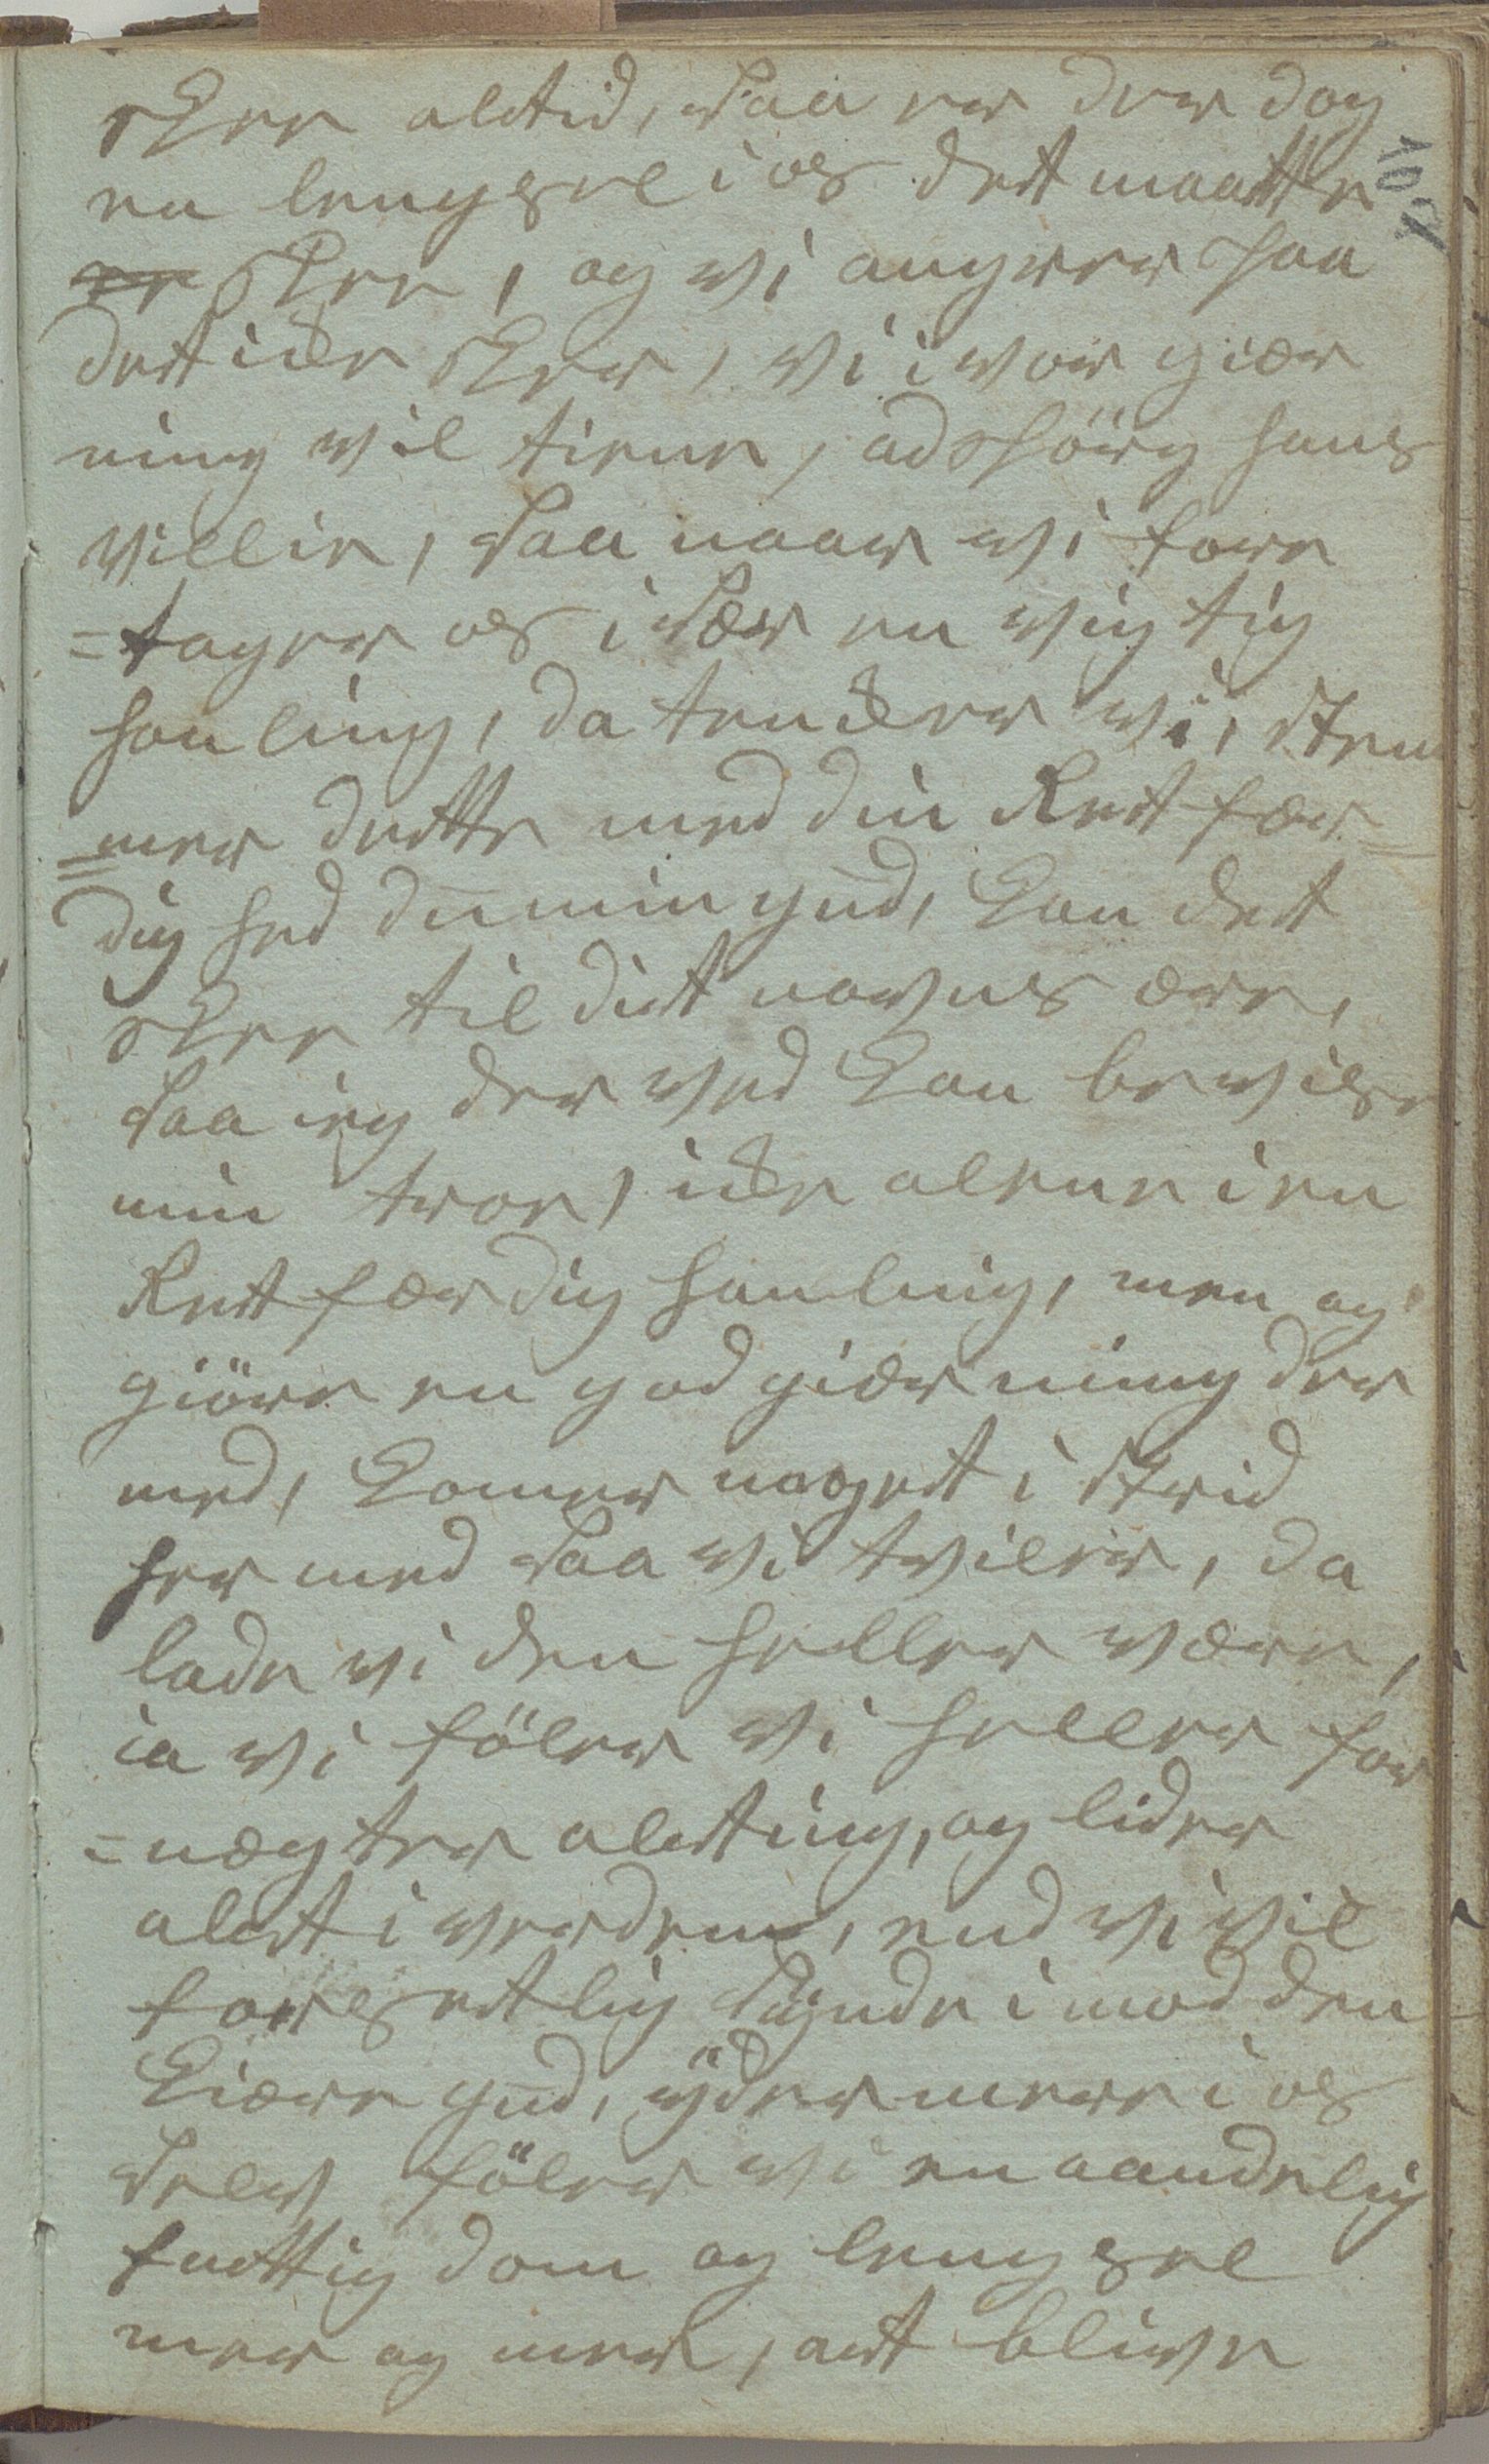 skee altid, saa er der dog
en lengsel i os dett maatte
er skee, og vi angrer saa
dett icke skeer, vi i vor gier
ning vil tiene, adspörg hans
villie, saa naar vi fore
=tager os i sær en vigtig
hanling, da tencker vi, stem
=mer dette med din Rett fær=
dig hed du min gud, kan dett
skee til ditt navns ære,
saa ieg der ved kan bevise
min troe, icke alene i en
Rett færdig hanling, men og
giöre en god gierning der
med, komer noget i strid
her med saa vi tviler, da
lade vi den heller være,
ia vi föler vi heller for
=nægter alting, og lider
alt i verden, end vi vil
forsetlig sÿnde i mod den
kiære gud, ÿdermere i os
selv föler vi en aandelig
fattigdom og lengsel
mer og mer, att blive
101